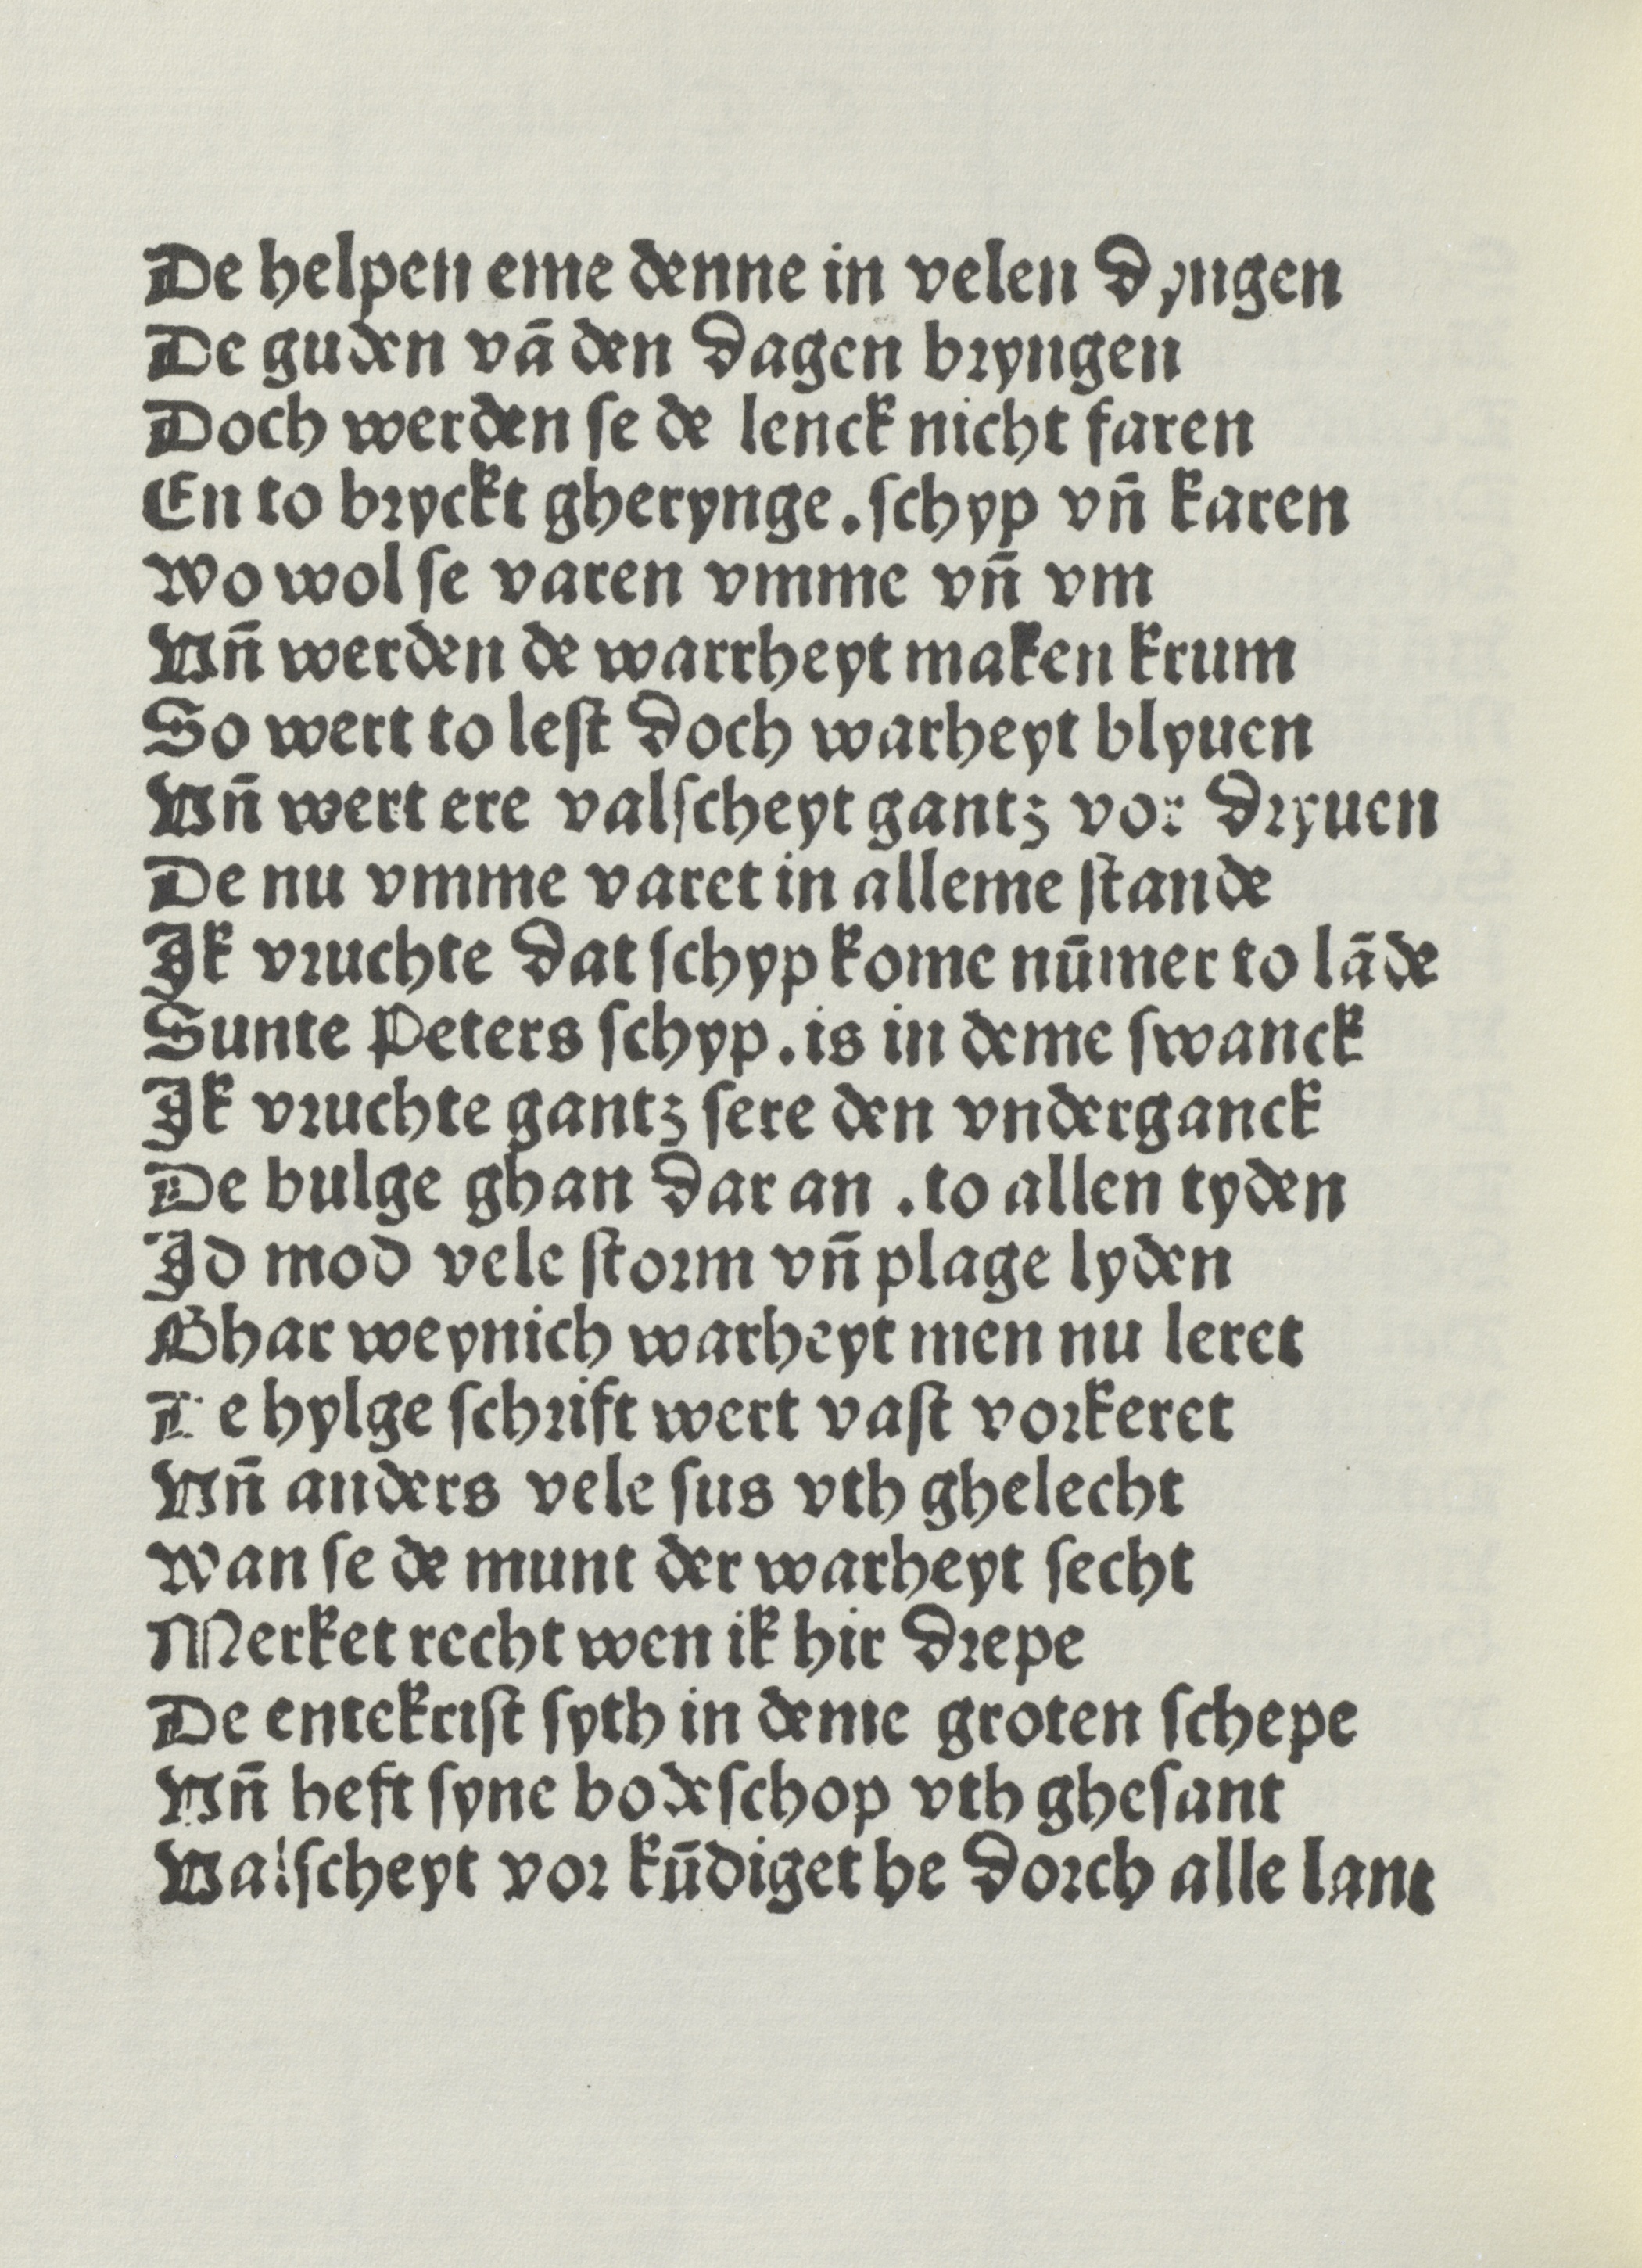 De helpen eme denne in velen dyngen
De guden vā den dagen bryngen
Doch werden ſe de lenck nicht faren
En to bryckt gherynge.ſchyp vn̄ karen
Wo wol ſe varen vmme vn̄ vm
Vn̄ werden de warrheyt maken krum
So wert to leſt doch warheyt blyuen
Vn̄ wert ere valſcheyt gantz vor dryuen
De nu vmme varet in alleme ſtande
Ik vruchte dat ſchyp kome nūmer to lāde
Sunte Peters ſchyp.is in deme ſwanck
Ik vruchte gantz ſere den vnderganck
De bulge ghan dar an .to allen tyden
Id mod vele ſtorm vn̄ plage lyden
Ghar weynich warheyt men nu leret
De hylge ſchrift wert vaſt vorkeret
Vn̄ anders vele ſus vth ghelecht
Wan ſe de munt der warheyt ſecht
Merket recht wen ik hir drepe
De entekriſt ſyth in deme groten ſchepe
Vn̄ heft ſyne bodeſchop vth gheſant
Valſcheyt vor kūdiget he dorch alle lant